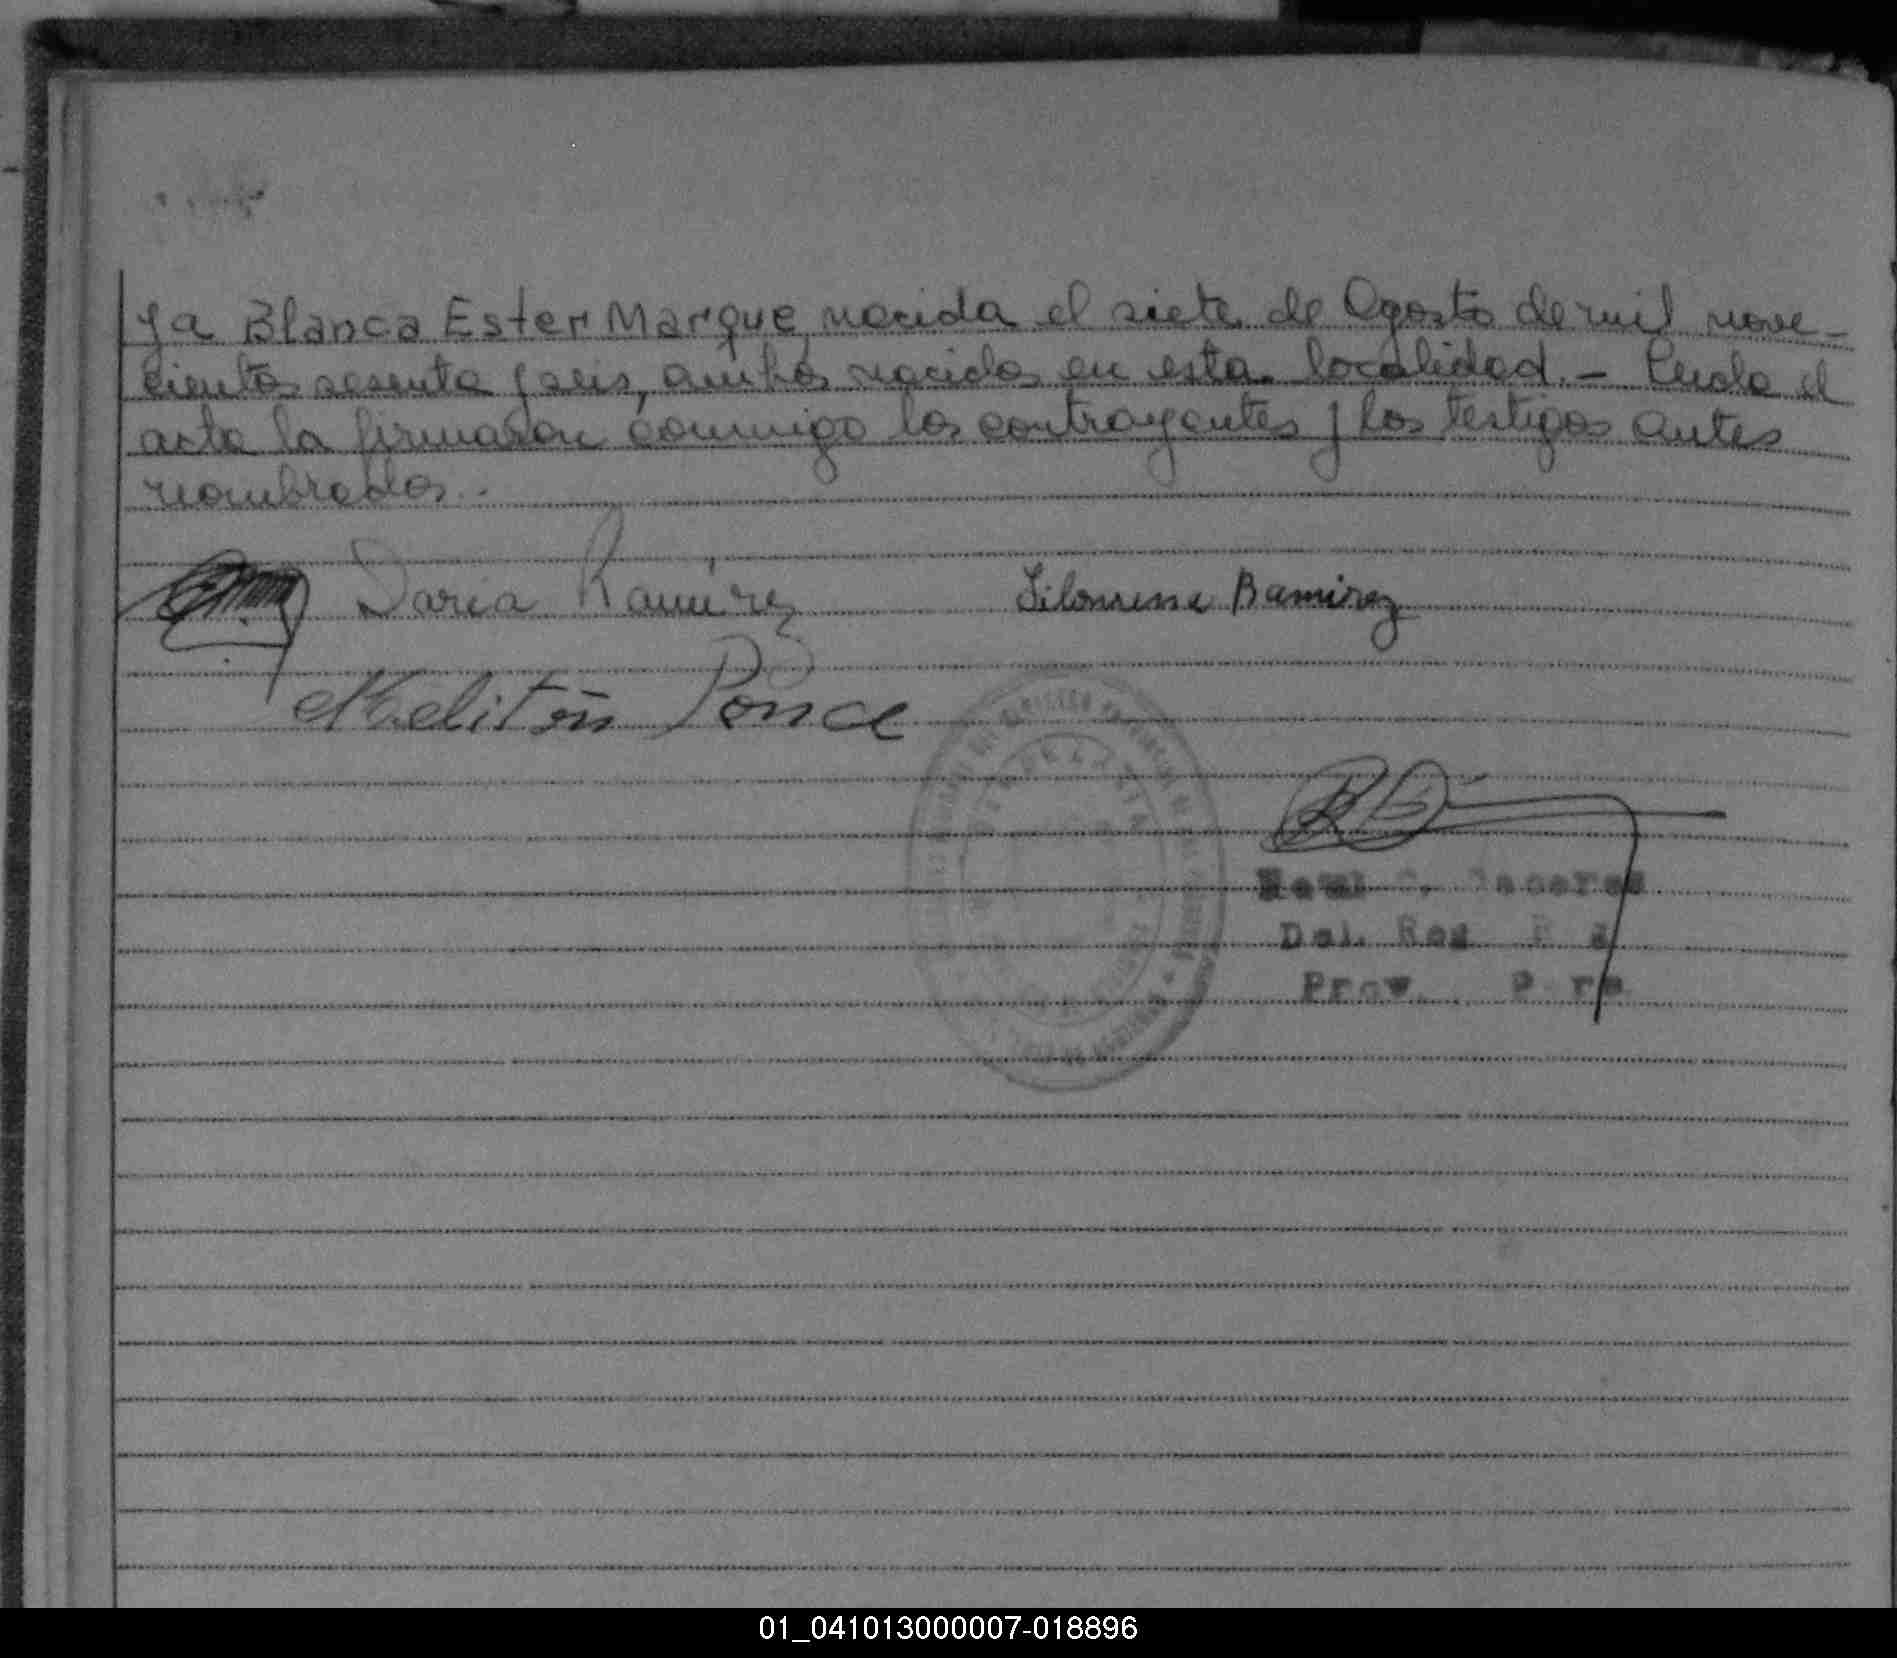 y a Blanca Ester Marque, nacida el siete de Agosto de mil nove-
cientos sesenta y seis, ambos nacidos en esta localidad. - Leida el
acta la firmaron conmigo los contrayentes y los testigos antes
nombrados.-
Daria Ramirez
Filomena Ramirez
Melitón Ponce
Del. Reg
Prov.
01_041013000007-018896